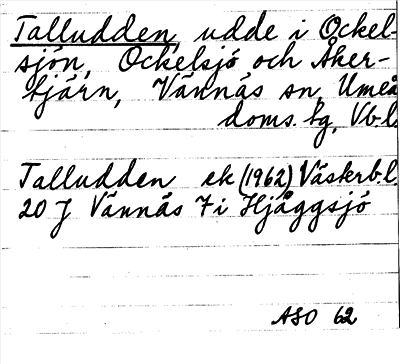 Talludden, udde i Ockel-
sjön, Ockelsjö och Åker-
tjärn, Vännäs sn, Umeå
doms. tg, Vb.l.
Talludden ek (1962) Väskerb.l.
20 J Vännäs 7 i Hjåggsjö
ASO 62